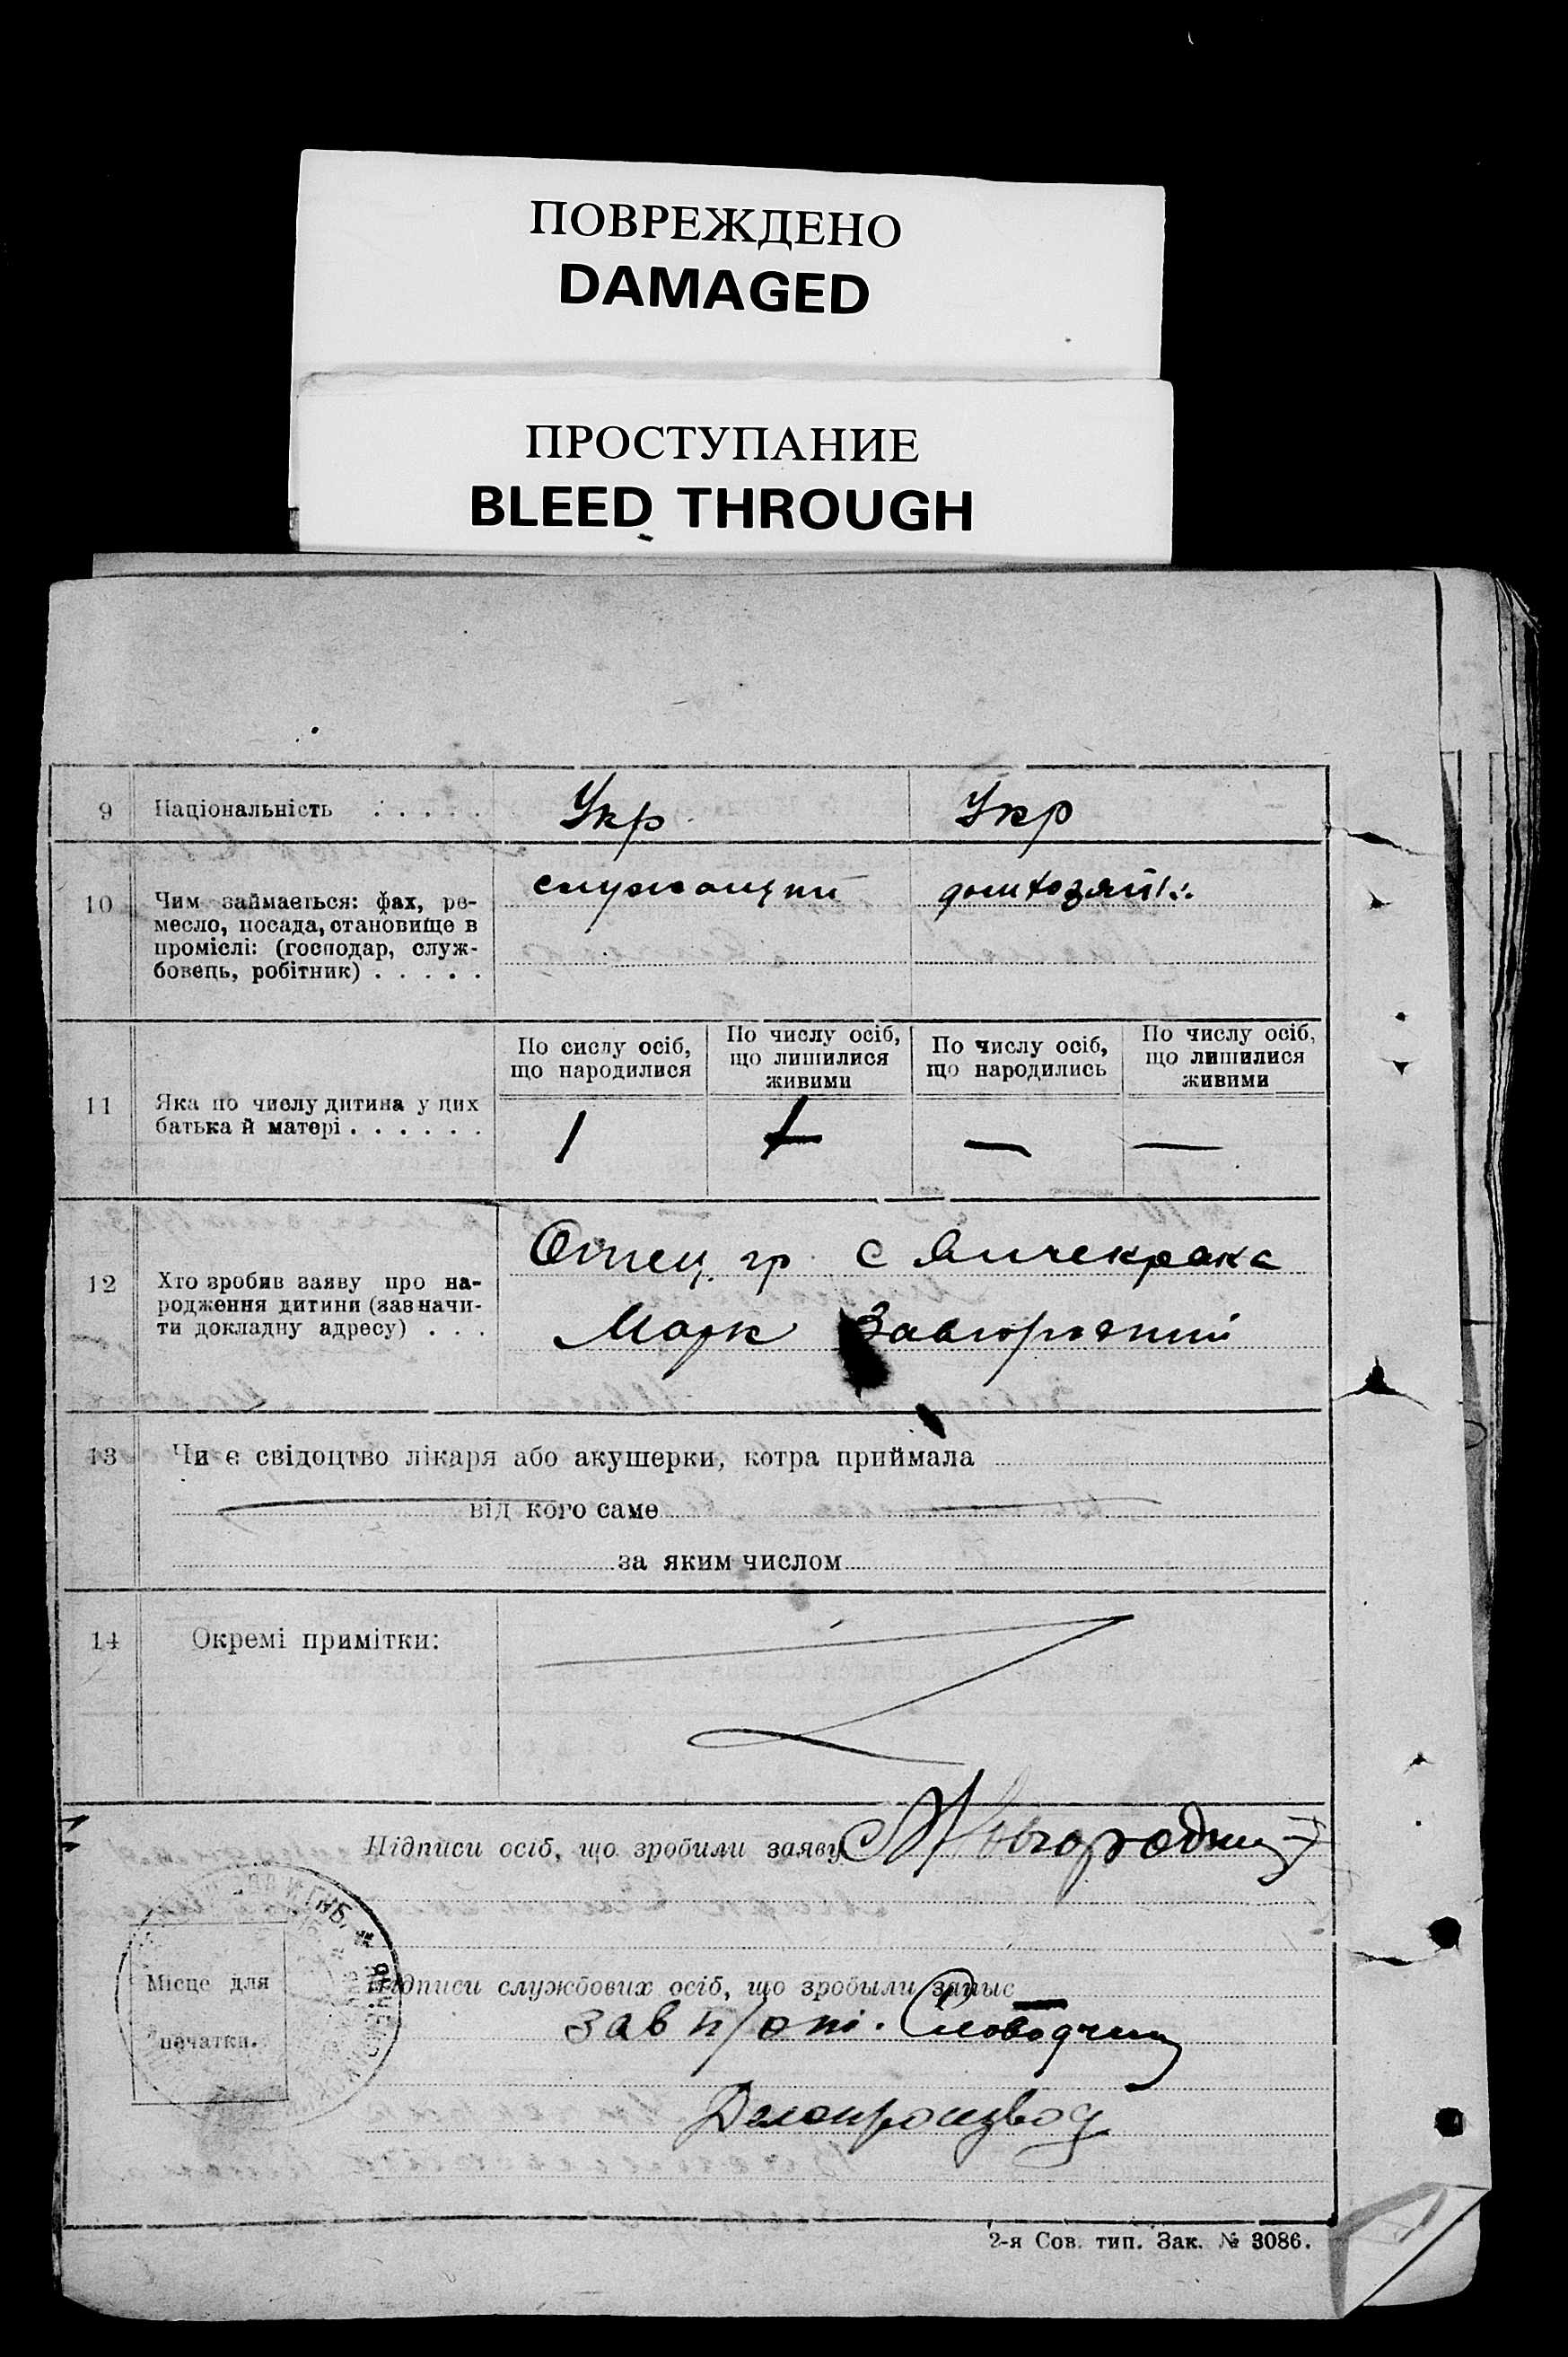 ПОВРЕЖДЕНО
DAMAGED
ПРОСТУПАНИЕ
BLEED THROUGH
9 Національність . . . . . Укр Укр
10 Чим займається: фах, ре-
месло, посада, становище в
проміслі: (господар, служ-
бовець, робітник) . . . . .
служащий домхозяйк.
11 Яка по числу дитина у цих
батька й матері . . . . . .
По сислу осіб,
що народилися
По числу осіб,
що лишилися
живими
По числу осіб,
що народились
По числу осіб,
що лишилися
живими
1 — —
12 Хто зробив заяву про на-
родження дитини (зазначи-
ти докладну адресу) . . .
Отец гр. с Янчекрака
Марк Завгородний
13 Чи є свідоцтво лікаря або акушерки, котра приймала
від кого саме
за яким числом
14 Окремі примітки:
Підписи осіб, що зробили заяву
Місце для
печатки.
Підписи службових осіб, що зробыли запыс
зав
Делопроизвод
2-я Сов. тип. Зак. № 3086.